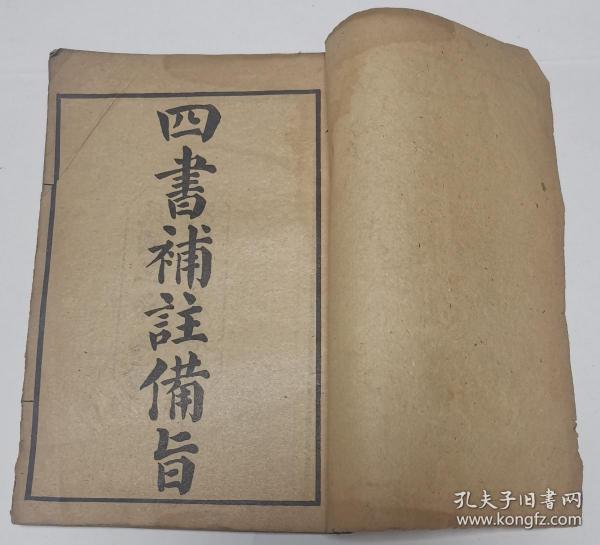 四書補註備旨
孔夫子旧书网
www.kongfz.com